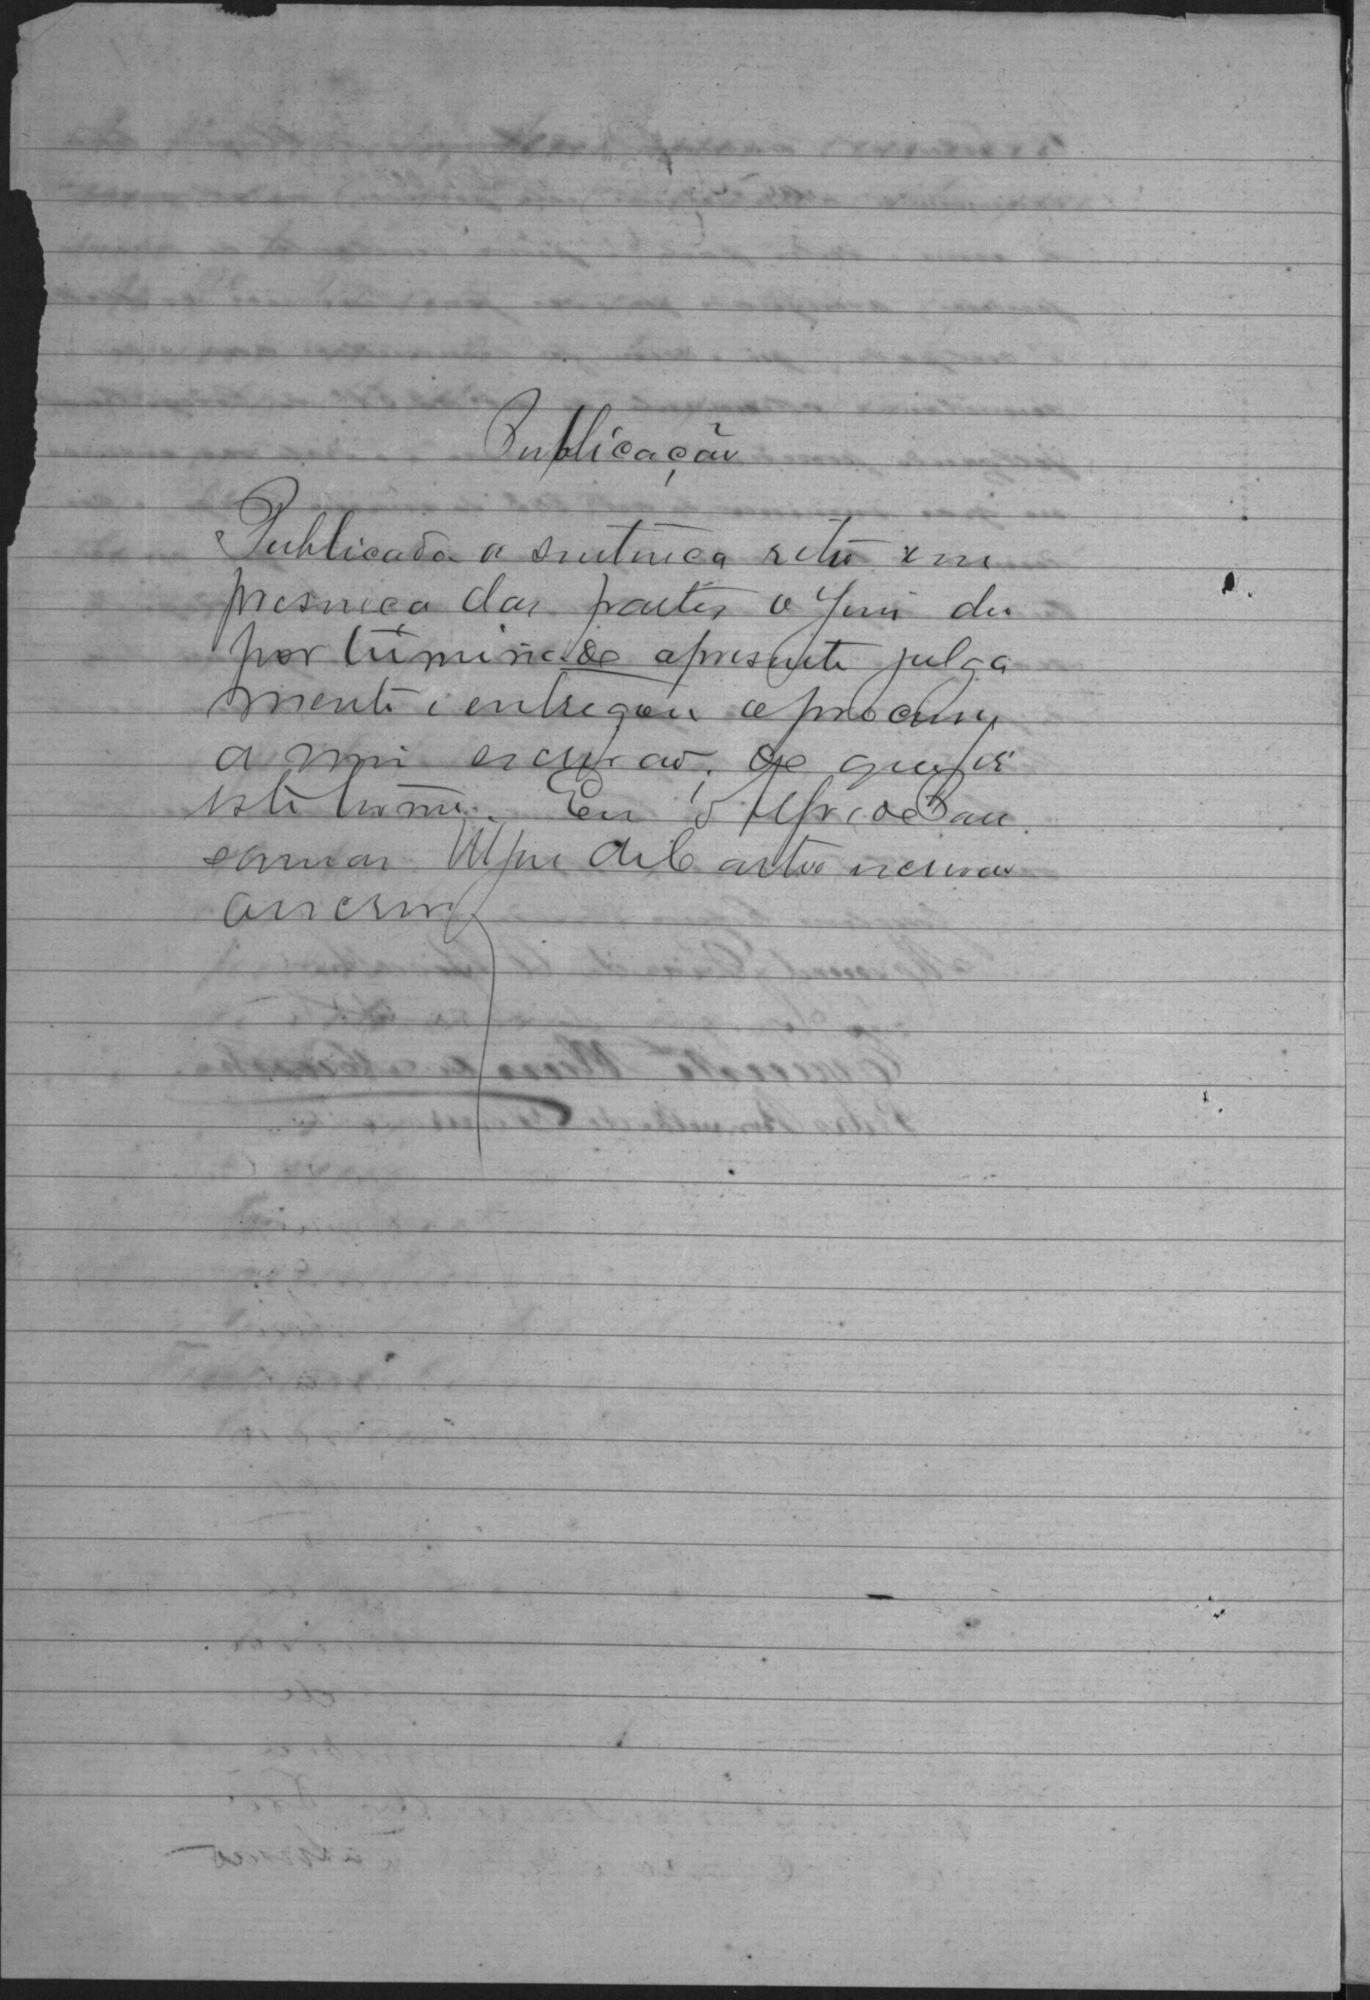 Publicação
Publicada a sentença retro em
presença das partes o Juiz deu
por terminado o presente julga
mento e entregou o processo
a mim escrivão, do que fiz
este termo. Eu, Alfredo
de Castro escrivão
o escrevy